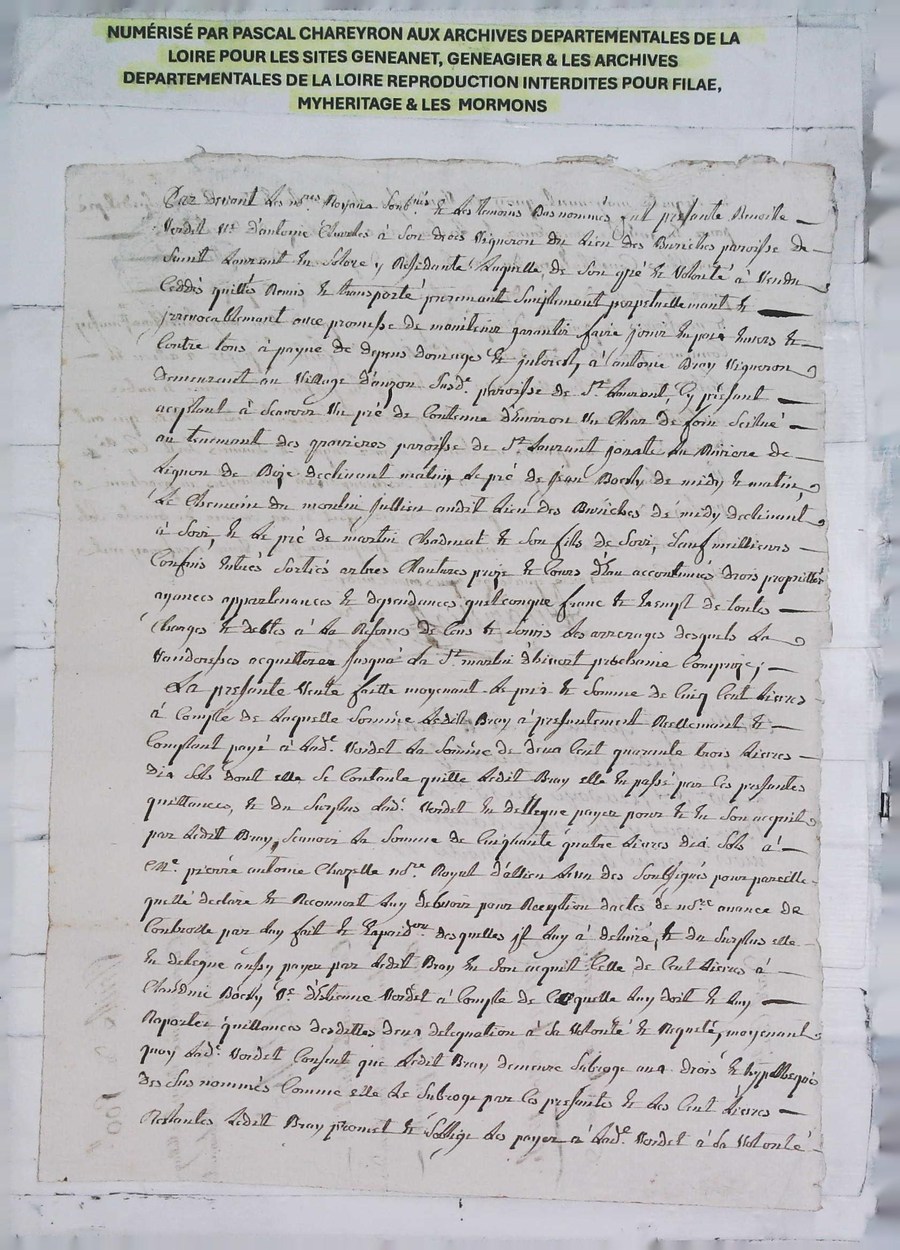 NUMÉRISÉ PAR PASCAL CHAREYRON AUX ARCHIVES DEPARTEMENTALES DE LA
LOIRE POUR LES SITES GENEANET, GENEAGIER & LES ARCHIVES
DEPARTEMENTALES DE LA LOIRE REPRODUCTION INTERDITES POUR FILAE,
MYHERITAGE & LES MORMONS
Par devant Les nres Royaux Soubnés & Les temoins Bas nommés fut presante Benoitte
Verdet Ve d'antoine Charles à Son vivant Vigneron du Lieu des Buriches paroisse de
Saint Laurant En Solore y Residante Laquelle de Son gré & Volonté à Vendu
Ceddés quittés Remis & transporté purement Simplement perpetuellemant &
jrrevocallemant avec promesse de maintenir garantir faire jouir En paix Envers &
Contre tous à payne de depens domages & jnterest, à antoine Bray Vigneron
Demeurant au Village d'auzon Susd. paroisse de St Laurant, Cy présant
aceptant à Scavoir Un pré de Contenue d'Environ Un Char de foin Scitué
au tenemant des gravieres paroisse de St Laurant joute La Riviere de
Lignon de Bize declinant matin, Le pré de Jean Bochy de midy & matin,
Le Chemain du moulin Jullien audit Lieu des Buriches de midy declinant
à Soir, & Le pré de martin Chadenat & Son fils de Soir, Sauf meillieurs
Confins Entrés Sortiés arbres Chautures prise & Cours d'Eau accoutumés Drois proprittés
ayances appartenances & dependances quelconque franc & Exempt de toutes
Charges & debtes à La Reserve de Cens & Servis Les arrerages desquels La
Vanderesses acquittera jusqua La St martin d'hivert prochaine Comprize;
La presante Vente faitte moyenant Le prix & Somme de Cinq Cent Livres
à Compte de Laquelle Somme Ledit Bray à presantement Reellemant &
Comptant payé à Lade Verdet La Somme de deux Cent quarante trois Livres
Dix Sols dont elle Se Contante quitte Ledit Bray elle En passé par Ces presantes
quittances, & du Surplus Lade Verdet En dellegue payer pour & En Son acquit
par Ledit Bray, Scavoir La Somme de Cinquante quatre Livres dix Sols à
Me pierre antoine Chazelle nore Royal d'allieu L'un des Soubsignés pour pareille
quelle declare & Reconnoit Luy debvoir pour Reception d'actes de nore avance de
Controlle par Luy fait & Expédons desquelles jl Luy à delivré, & du Surplus elle
En delegue aussy payer par Ledit Bray En Son acquit Celle de Cent Livres à
Claudine Bochy Ve d'Etienne Verdet à Compte de Ce quelle Luy doit & Luy
Raporter quittances desdittes deux delegation à Sa Volonté & Requete, moyenant
quoy Lade Verdet Consent que Ledit Bray demeure Subroge aux drois & hypotheques
des Sus nommés Comme elle Le Subroge par Ces presantes & Les Cent Livres
Restantes Ledit Bray promet & Soblige Les payer à Lade Verdet à Sa Volonté